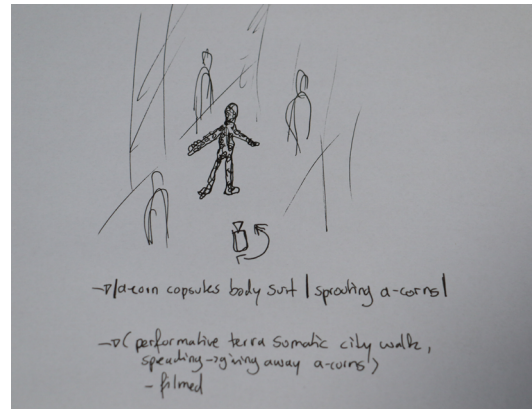 →/a-coin capsules body suit | sprouting a-corns|
→( performative terra somatic city walk,
spreading → giving away a-corns )
- filmed